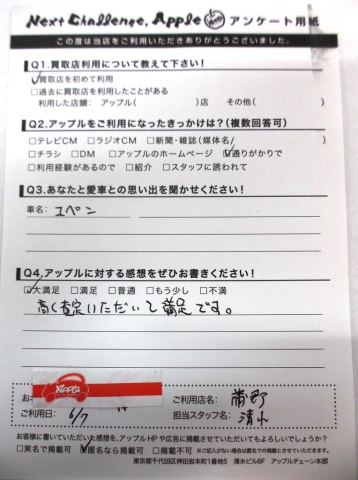 Next Challenge, Apple アンケート用紙
この度は当店をご利用いただきありがとうございました。
Q1.買取店利用について教えて下さい!
☑買取店を初めて利用
□過去に買取店を利用したことがある
利用した店舗: アップル( )店 その他( )
Q2.アップルをご利用になったきっかけは?(複数回答可)
□テレビCM □ラジオCM □新聞・雑誌(媒体名/ )
□チラシ □DM □アップルのホームページ ☑通りがかりで
□利用経験があるので □紹介 □スタッフに誘われて
Q3.あなたと愛車との思い出を聞かせください!
車名: エペン
Q4.アップルに対する感想をぜひお書きください!
☑大満足 □満足 □普通 □もう少し □不満
高く査定いただいて満足です。
Apple
ご利用店名: 蒲町
ご利用日: 6/7
担当スタッフ名: 清水
お客様に書いていただいた感想を、アップルHPや広告に掲載させていただいてもよろしいでしょうか?
□実名で掲載可 ☑匿名なら掲載可 □掲載不可 ※ご記入がない場合は匿名での掲載とさせていただきます。
東京都千代田区神田岩本町1番地5 清水ビル6F アップルチェーン本部